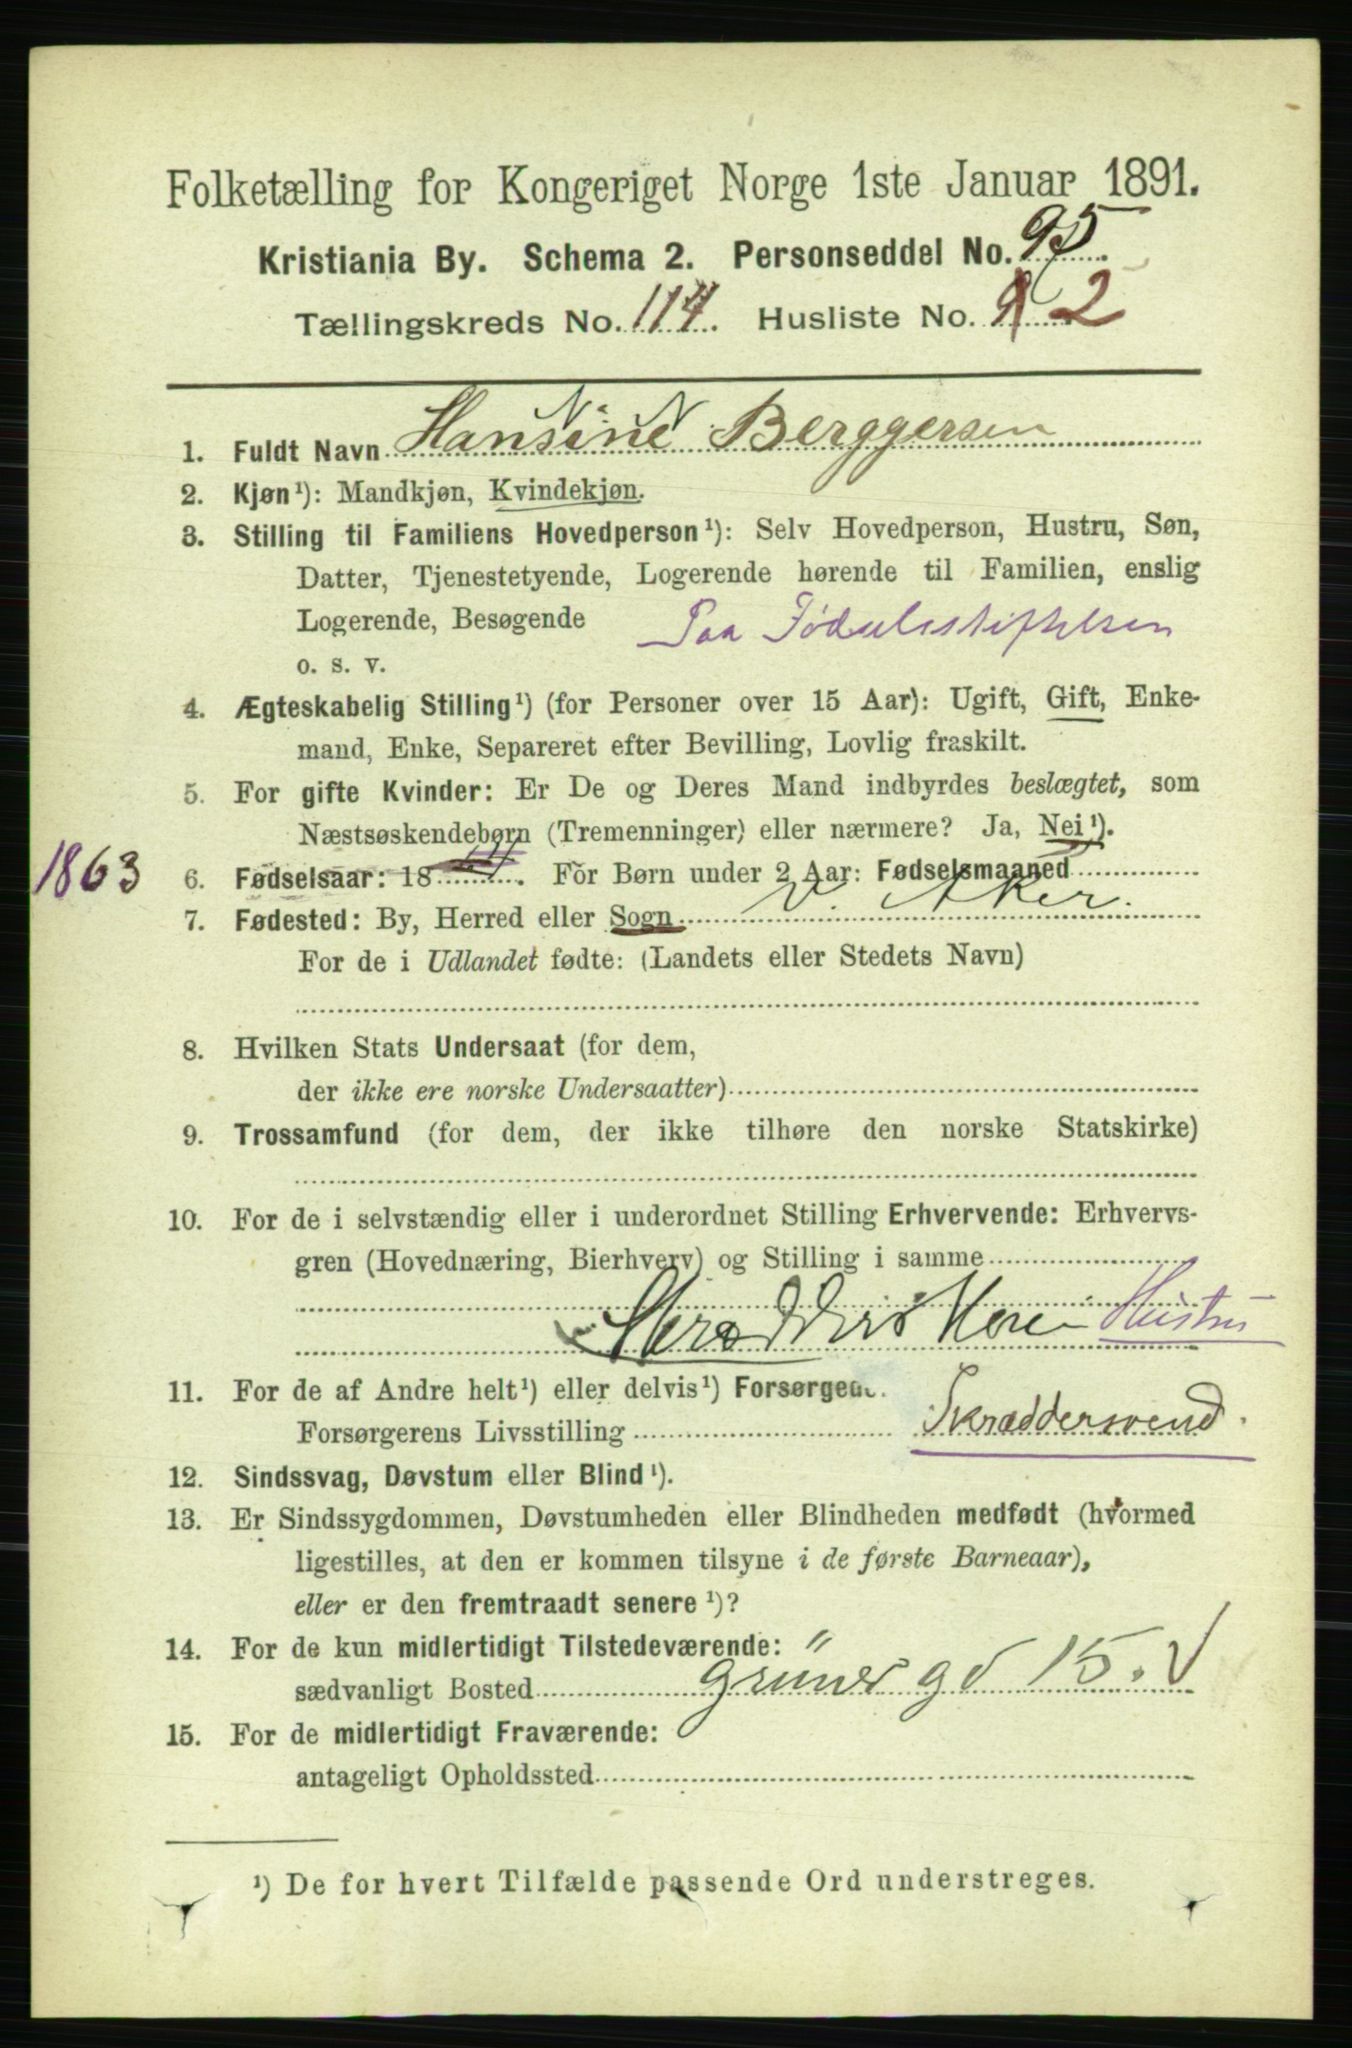 Folketælling for Kongeriget Norge 1ste Januar 1891.
Kristiania By. Schema 2. Personseddel No. 95.
Tællingskreds No. 114. Husliste No. 2
1. Fuldt Navn Hansine Berggersen
2. Kjøn¹): Mandkjøn, Kvindekjøn.
3. Stilling til Familiens Hovedperson¹): Selv Hovedperson, Hustru, Søn,
Datter, Tjenestetyende, Logerende hørende til Familien, enslig
Logerende, Besøgende Paa Fødselsstiftelsen
o. s. v.
4. Ægteskabelig Stilling¹) (for Personer over 15 Aar): Ugift, Gift, Enke-
mand, Enke, Separeret efter Bevilling, Lovlig fraskilt.
5. For gifte Kvinder: Er De og Deres Mand indbyrdes beslægtet, som
Næstsøskendebørn (Tremenninger) eller nærmere? Ja, Nei¹).
1863 6. Fødselsaar: 18 . For Børn under 2 Aar: Fødselsmaaned
7. Fødested: By, Herred eller Sogn V. Aker.
For de i Udlandet fødte: (Landets eller Stedets Navn)
8. Hvilken Stats Undersaat (for dem,
der ikke ere norske Undersaatter)
9. Trossamfund (for dem, der ikke tilhøre den norske Statskirke)
10. For de i selvstændig eller i underordnet Stilling Erhvervende: Erhvervs-
gren (Hovednæring, Bierhverv) og Stilling i samme
Hustru
11. For de af Andre helt¹) eller delvis¹) Forsørgede.
Forsørgerens Livsstilling Skræddersvend.
12. Sindssvag, Døvstum eller Blind¹).
13. Er Sindssygdommen, Døvstumheden eller Blindheden medfødt (hvormed
ligestilles, at den er kommen tilsyne i de første Barneaar),
eller er den fremtraadt senere¹)?
14. For de kun midlertidigt Tilstedeværende: "
sædvanligt Bosted Grüners gd 15.
15. For de midlertidigt Fraværende:
antageligt Opholdssted
¹) De for hvert Tilfælde passende Ord understreges.